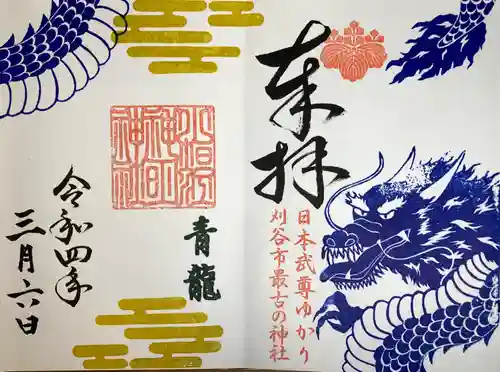 奉拝
日本武尊ゆかり
刈谷市最古の神社
小垣江
神明
神社
青龍
令和四年
三月六日